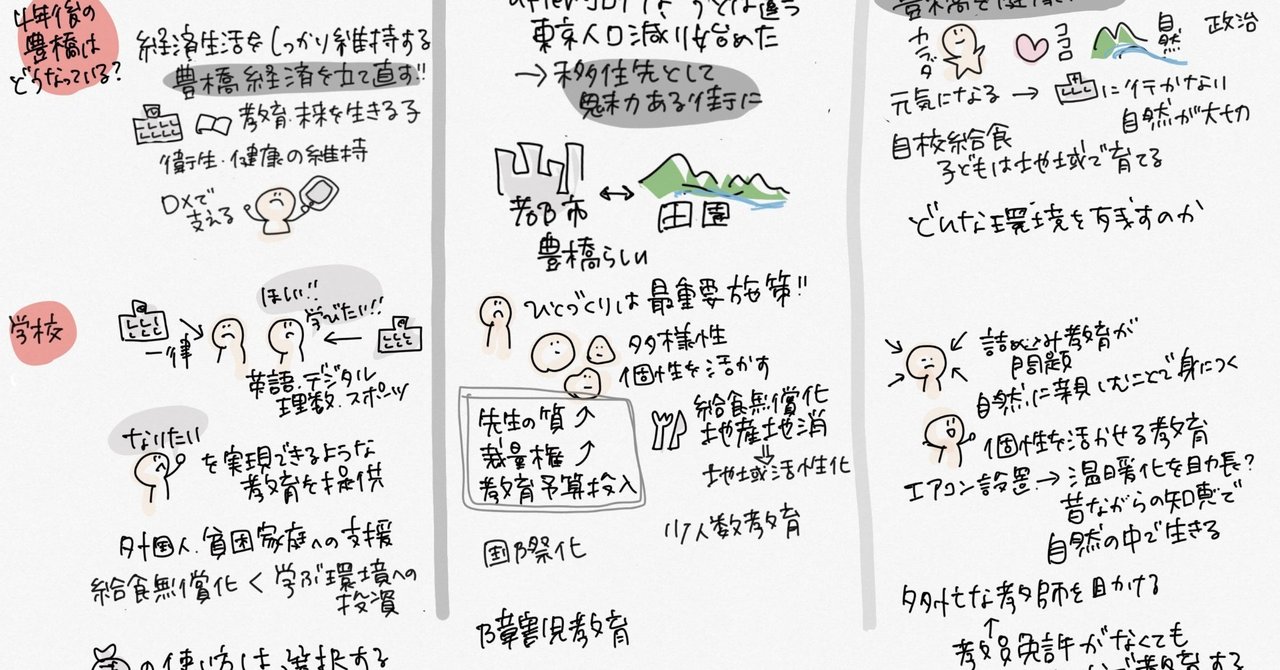 4年後の
豊橋は
どうなっている?
経済生活をしっかり維持する
豊橋経済を立て直す!!
教育・未来を生きる子
衛生・健康の維持
DXで
支える
学校
一律
ほしい!!
学びたい!!
英語・デジタル
理数・スポーツ
なりたい
を実現できるような
教育を提供
外国人・貧困家庭への支援
給食無償化 < 学ぶ環境への
投資
の使い方は選択する
東京人口減り始めた
→移住先として
魅力ある街に
都市 ↔ 田園
豊橋らしい
ひとづくりは最重要施策!!
多様性
個性を活かす
先生の質↑
裁量権↑
教育予算投入
給食無償化
地産地消
⇓
地域活性化
少人数教育
国際化
障害児教育
カラダ
ココロ
自然
政治
元気になる → に行かない
自然が大切
自校給食
子どもは地域で育てる
どんな環境を残すのか
詰め込み教育が
問題
自然に親しむことで身につく
個性を活かせる教育
エアコン設置→温暖化を助長?
昔ながらの知恵で
自然の中で生きる
多忙な教師を助ける
↑
教員免許がなくても